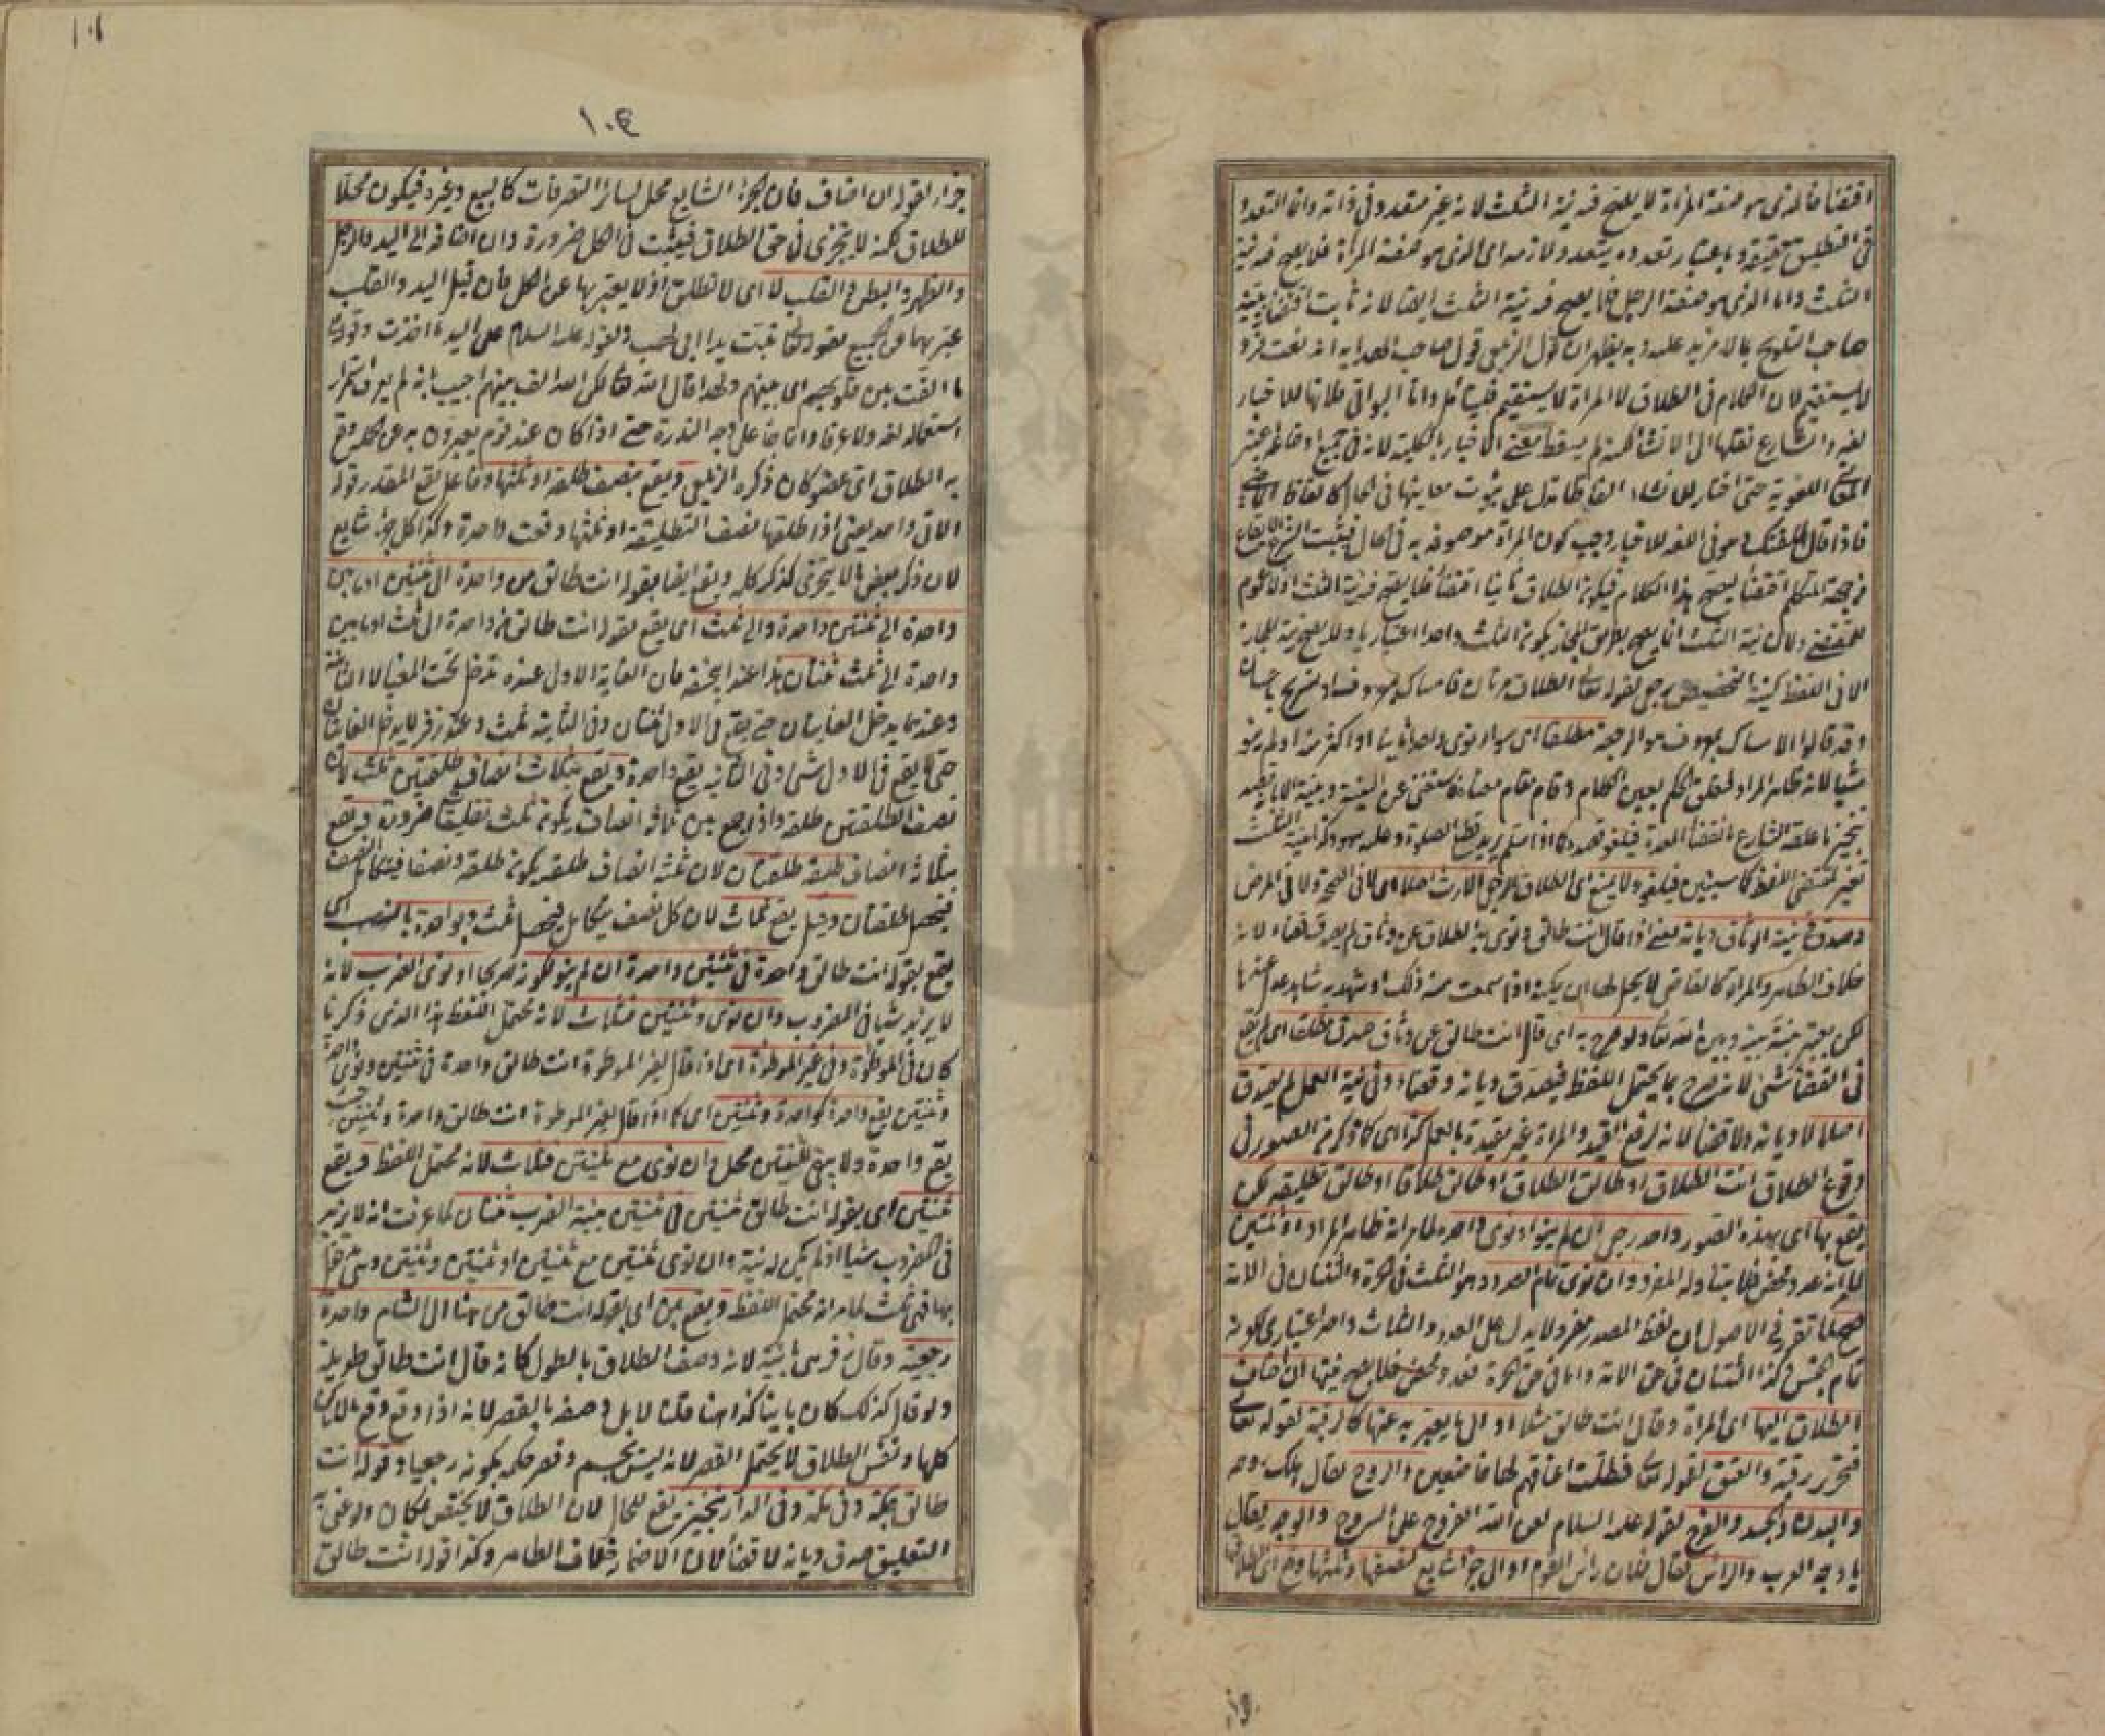 اقتضاء فالذى هو صفة المرأة لا يصح فيه نية الثلث لانه غير متعدد فى ذاته وانما التعدد
فى التطليق حقيقة وباعتبار تعدده يتعدد لازمه اى الذى هو صفة المرأة فلا يصح فيه نية
الثلث واما الذى هو صفة الرجل فلا يصح فيه نية الثلث ايضا لانه ثابت اقتضاء
صاحب التلويح بما لا مزيد عليه وبه يظهر ان قول الزيلعى قول صاحب الهداية انه نعت فرد
لا يستقيم لان الكلام فى الطلاق لا المرأة لا يستقيم فليتأمل واما البواقى فلانها للاخبار
لغة والشارع نقلها الى الانشاء لكنه لم يسقط معنى الاخبار بالكلية لانه فى جميع اوضاعه اعتبر
المعانى اللغوية حتى اختار للانشاء الفاظا تدل على ثبوت معانيها فى الحال كالفاظ الماضى
فاذا قال طلقتك وهو فى اللغة للاخبار وجب كون المرأة موصوفة به فى الحال فيثبت الشرع الايقاع
من جهة المتكلم اقتضاء ليصح هذا الكلام فيكون الطلاق ثابتا اقتضاء فلا يصح فيه نية الثلث اذ لا عموم
للمقتضى ولان نية الثلث انما يصح بطريق المجاز بكون الثلث واحدا اعتباريا ولا يصح نية المجاز
الا فى اللفظ كنية التخصيص رجعى لقوله تعالى الطلاق مرتان فامساك بمعروف او تسريح باحسان
وقد قالوا الامساك بمعروف هو الرجعة مطلقا اى سواء نوى واحدا باينا او اكثر منه او لم ينو
شيأ لانه ظاهر المراد فتعلق الحكم بعين الكلام وقام مقام معناه فاستغنى عن النية وبنية الابانة قصد
تنجيز ما علقه الشارع بانقضاء العدة فيلغو قصده كما اذا سلم يريد قطع الصلوة وعليه سهو وكذا نية الثلث
تغيير لمقتضى اللفظ كما سيتبين فيلغو ولا يمنع اى الطلاق الرجعى الارث اصلا اى لا فى الصحة ولا فى المرض
وصدق فى نية الوثاق ديانة يعنى اذا قال انت طالق ونوى به الطلاق عن وثاق لم يصدق قضاء لانه
خلاف الظاهر والمرأة كالقاضى لا يحل لها ان تمكنه اذا سمعت منه ذلك او شهد به شاهد عدل عندها
لكن يعتبر نيته بينه وبين الله تعالى ولو صرح به اى قال انت طالق عن وثاق صدق مطلقا اى لم يقع
فى القضاء شئ لانه صرح بما يحتمل اللفظ فيصدق ديانة وقضاء وفى نية العمل لم يصدق
اصلا لا ديانة ولا قضاء لانه لرفع القيد والمرأة غير مقيدة بالعمل كذا اى كما ذكر من الصور فى
وقوع الطلاق انت الطلاق او طالق الطلاق او طالق طلاقا او طالق تطليقة لكن
يقع بها اى بهذه الصور واحد رجعى ان لم ينو او نوى واحدة لما مر انه ظاهر المراد او ثنتين
لما مر انه عدد محض فلا يتناوله المفرد وان نوى تمام العدد وهو الثلث فى الحرة والثنتان فى الامة
صح لما تقرر فى الاصول ان لفظ المصدر مفرد لا يدل على العدد والثلث واحد اعتبارى لكونه
تمام الجنس وكذا الثنتان فى حق الامة واما فى حق الحرة فعدد محض فلا يصح نيتها ان اضاف
الطلاق اليها اى المرأة وقال انت طالق مثلا او الى ما يعبر به عنها كالرقبة لقوله تعالى
فتحرير رقبة والعنق لقوله تعالى فظلت اعناقهم لها خاضعين والروح يقال هلك روحه
والبدن والجسد والفرج لقوله عليه السلام لعن الله الفروج على السروج والوجه يقال
يا وجه العرب والرأس يقال فلان رأس القوم او الى جزء شايع كنصفها وثلثها وقع اى الطلاق
١٠٤
جزاء لقوله ان اضاف فان الجزء الشايع محل لسائر التصرفات كالبيع وغيره فيكون محلا
للطلاق لكنه لا يتجزى فى حق الطلاق فيثبت فى الكل ضرورة وان اضافه الى اليد والرجل
والظهر والبطن والقلب لا اى لا تطلق اذ لا يعبر بها عن الكل فان قيل اليد والقلب
عبر بهما عن الجميع لقوله تعالى تبت يدا ابى لهب ولقوله عليه السلام على اليد ما اخذت وقوله
ما الفت بين قلوبهم اى بينهم ولهذا قال الله تعالى ولكن الله الف بينهم اجيب بانه لم يعرف استمرار
استعماله لغة ولا عرفا وانما جاء على وجه الندرة حتى اذا كان عند قوم يعبرون به عن الجملة وقع
به الطلاق اى عضو كان ذكره الزيلعى ويقع بنصف طلقة او ثلثها وفاعل يقع المقدر قوله
الآتى واحد يعنى اذا طلقها نصف التطليقة او ثلثها وقعت واحدة وكذا كل جزء شايع
لان ذكر بعض ما لا يتجزى كذكر كله ويقع ايضا بقوله انت طالق من واحدة الى ثنتين او ما بين
واحدة الى ثنتين واحدة والى ثلث اى يقع بقوله انت طالق من واحدة الى ثلث او ما بين
واحدة الى ثلث ثنتان هذا عند ابى حنيفة فان الغاية الاولى عنده تدخل تحت المغيا لا الثانية
وعندهما يدخل الغايتان حتى يقع فى الاولى ثنتان وفى الثانية ثلث وعند زفر لا يدخل الغايتان
حتى لا يقع فى الاولى شئ وفى الثانية يقع واحدة ويقع بثلاث انصاف طلقتين ثلث لان
نصف الطلقتين طلقة واذا جمع بين ثلاثة انصاف يكون ثلث تطليقات ضرورة ويقع
بثلاثة انصاف طلقة طلقتان لان ثلثة انصاف طلقة يكون طلقة ونصفا فيتكامل النصف
فيحصل طلقتان وقيل يقع ثلاث لان كل نصف يتكامل فيحصل ثلث وبواحدة بالنصب اى
يقع بقوله انت طالق واحدة فى ثنتين واحدة ان لم ينو لكونه صريحا او نوى الضرب لانه
لا يزيد شيأ فى المضروب وان نوى وثنتين فثلاث لانه محتمل اللفظ هذا الذى ذكرنا
كان فى الموطوءة وفى غير الموطوءة اى اذا قال لغير الموطوءة انت طالق واحدة فى ثنتين ونوى واحدة
وثنتين يقع واحدة كواحدة وثنتين اى كما اذا قال لغير الموطوءة انت طالق واحدة وثنتين حيث
يقع واحدة ولا يبقى للثنتين محل وان نوى مع ثنتين فثلاث لانه محتمل اللفظ ويقع
ثنتين اى بقوله انت طالق ثنتين فى ثنتين بنية الضرب ثنتان لما عرفت انه لا يزيد
فى المضروب شيأ اذ لم يكن له نية وان نوى ثنتين مع ثنتين او ثنتين وثنتين وهى مدخول
بها فهى ثلث لما مر انه محتمل اللفظ ويقع بمن اى بقوله انت طالق من هنا الى الشام واحدة
رجعية وقال زفر هى باينة لانه وصف الطلاق بالطول كانه قال انت طالق طويلة
ولو قال كذلك كان باينا كذا هنا قلنا لا بل وصفه بالقصر لانه اذا وقع وقع فى الاماكن
كلها ونفس الطلاق لا يحتمل القصر لانه ليس بجسم وقصر حكمه بكونه رجعيا وقوله انت
طالق بمكة وفى مكة وفى الدار تنجيز يقع للحال لان الطلاق لا يختص بمكان ولو عنى به
التعليق صدق ديانة لا قضاء لان الاضمار خلاف الظاهر وكذا قوله انت طالق